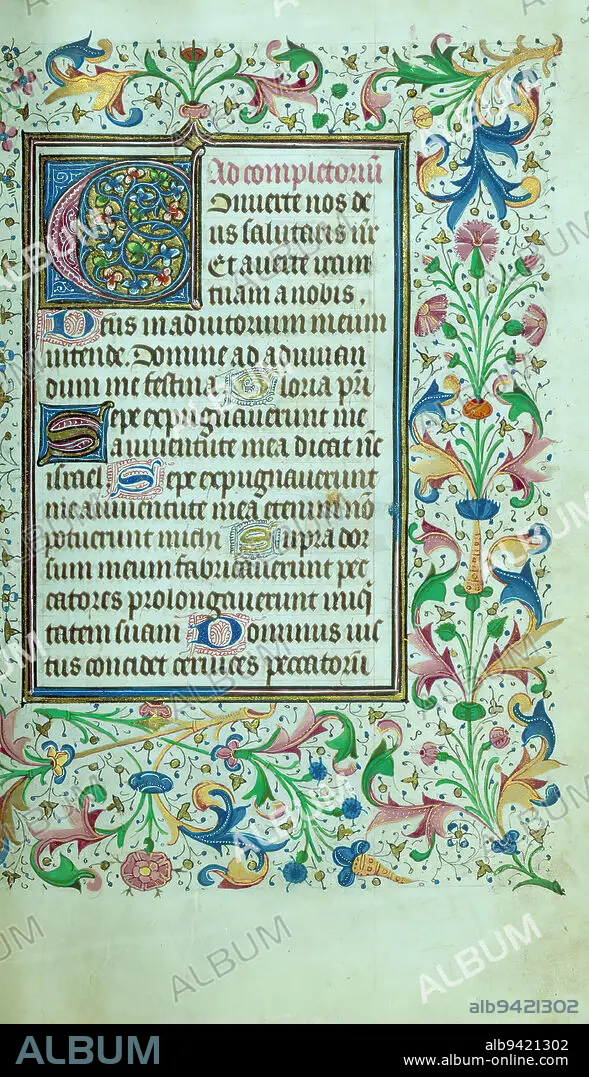 Ad completoriu̅
Conuerte nos de
us salutaris nr̅
Et auerte iram
tuam a nobis.
Deus in adiutorium meum
intende. Domine ad adiuuan
dum me festina Gloria pr̅i
Sepe expugnauerunt me
a iuuentute mea dicat nc̅
israel Sepe expugnauerunt
me a iuuentute mea etenim no̅
potuerunt michi Supra dor
sum meum fabricauerunt pec
catores prolongauerunt iniq̅
tatem suam Dominus ius
tus concidet ceruices peccatoru̅
alb9421302
ALBUM
alb9421302
www.album-online.com